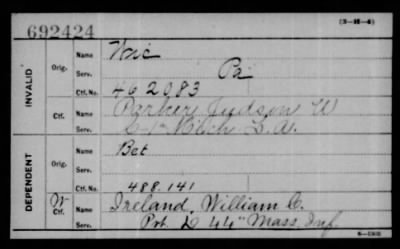 692424
(3-16-4)
INVALID
Orig.
Name Wic
Serv. Pa
Ctf. No. 462083
Ctf.
Name Parker Judson W
Serv. C 1" Mich L.A.
DEPENDENT
Orig.
Name Bet
Serv.
Ctf. No. 488.141
W
Ctf.
Name Ireland, William C.
Serv. Pvt. D 44" Mass Inf